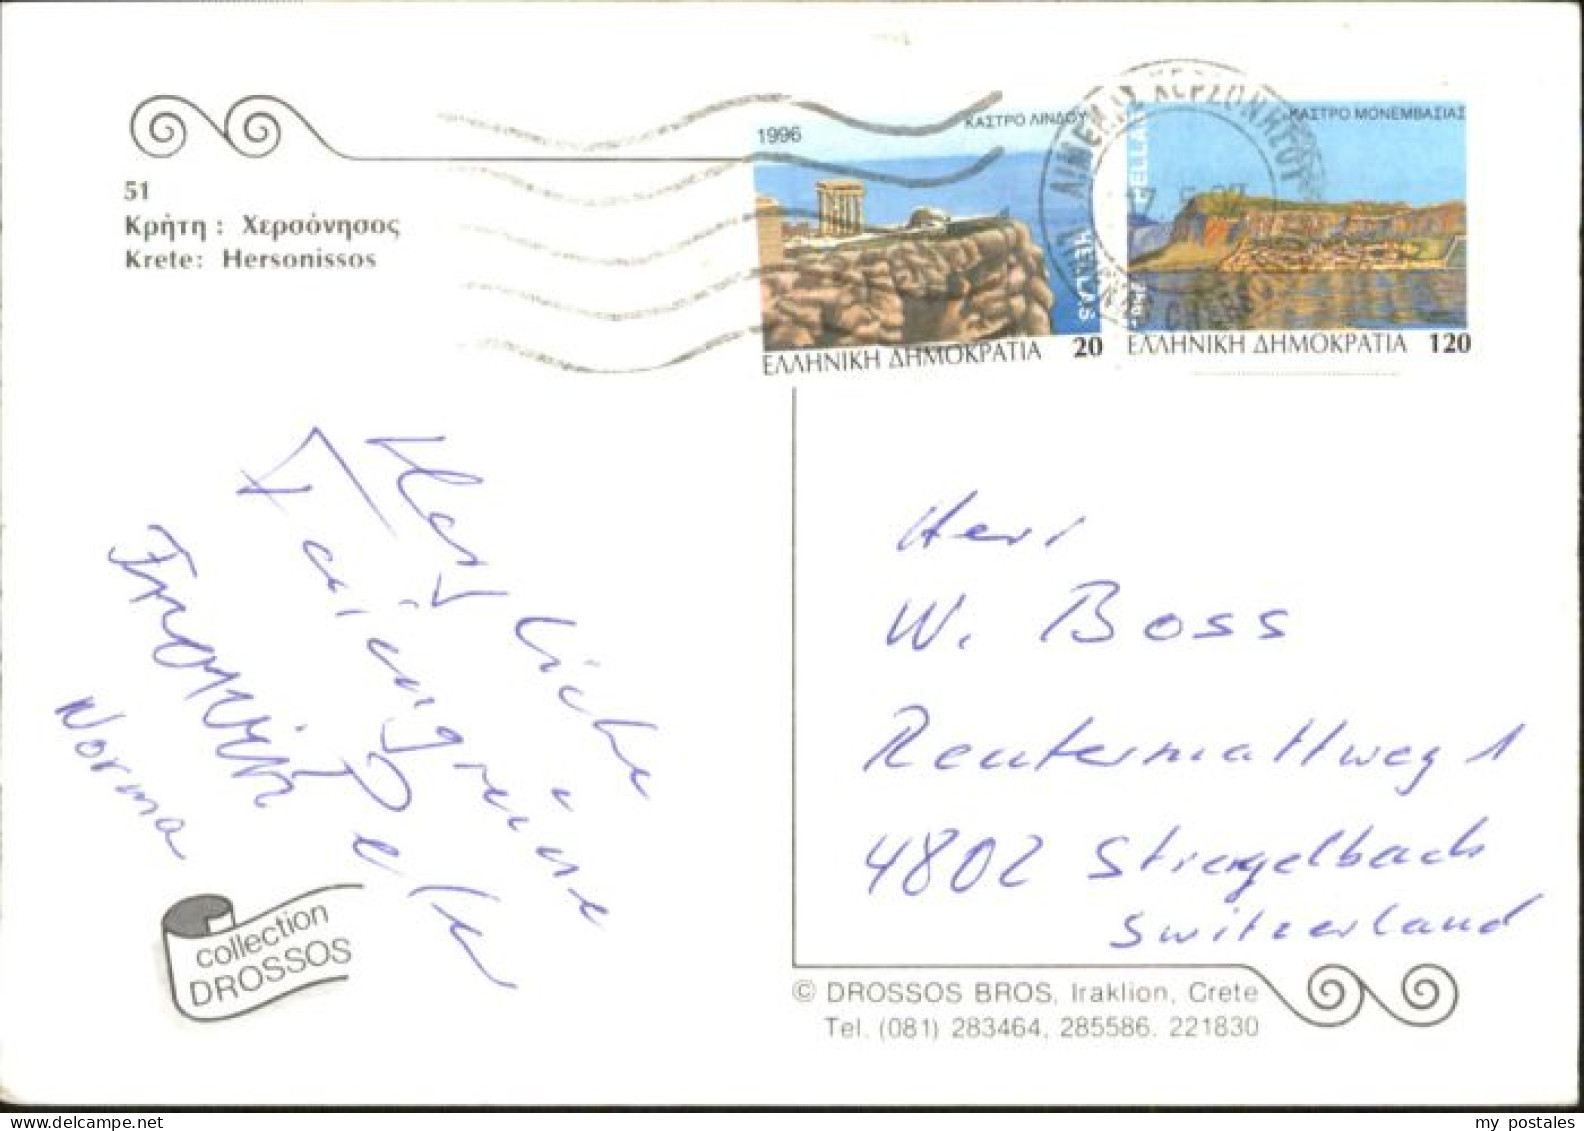 1996
ΚΑΣΤΡΟ ΛΙΝΔΟΥ
HELLAS
ΕΛΛΗΝΙΚΗ ΔΗΜΟΚΡΑΤΙΑ 20
ΚΑΣΤΡΟ ΜΟΝΕΜΒΑΣΙΑΣ
HELLAS
ΕΛΛΗΝΙΚΗ ΔΗΜΟΚΡΑΤΙΑ 120
51
Κρήτη : Χερσόνησος
Krete: Hersonissos
Herzliche
Feriengrüsse
Norma
Herr
W. Boss
Reutermattweg 1
4802 Strengelbach
Switzerland
collection
DROSSOS
© DROSSOS BROS, Iraklion, Crete
Tel. (081) 283464, 285586. 221830
my postales